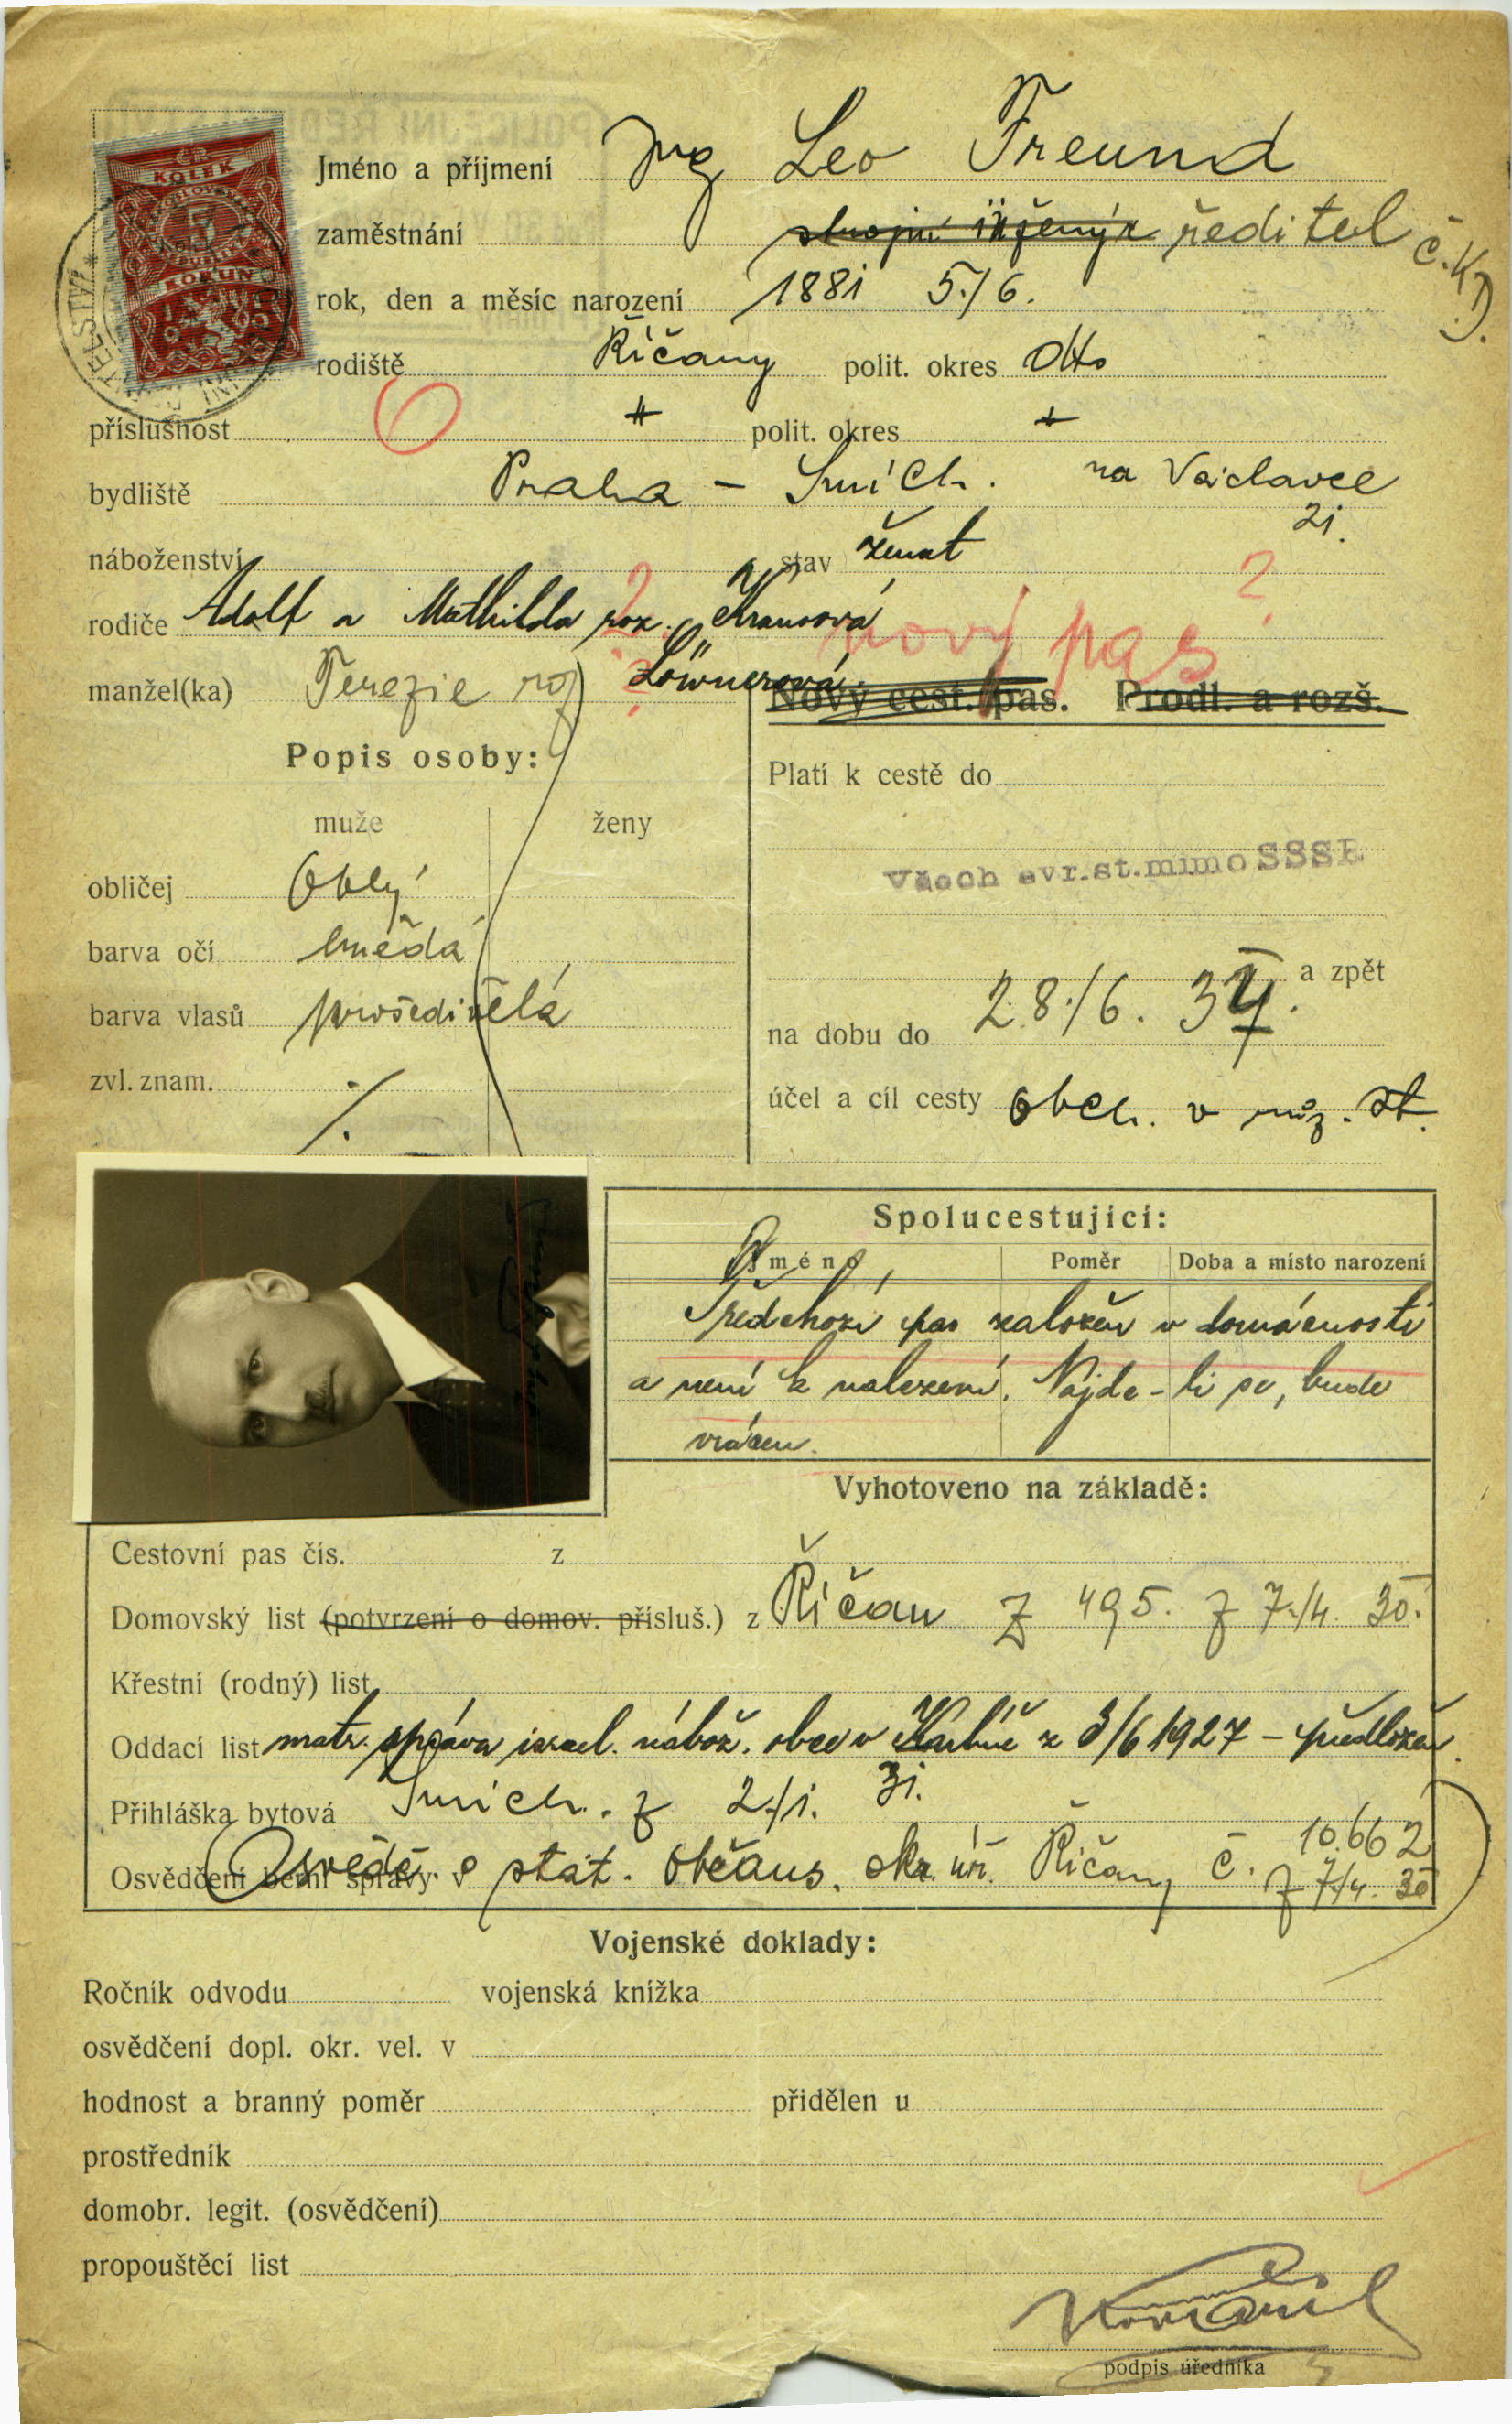 ČR
KOLEK
5
KORUN
Jméno a příjmení Ing Leo Freund
zaměstnání strojní inženýr ředitel Č.K.D.
rok, den a měsíc narození 1881 5./6.
rodiště Říčany polit. okres dtto
příslušnost " polit. okres "
bydliště Praha – Smích. na Václavce
21.
náboženství stav ženat
rodiče Adolf a Mathilda roz. Krausová
?
nový pas
manžel(ka) Terezie roz Löwnerová
Nový cest. pas. Prodl. a rozš.
Popis osoby:
Platí k cestě do
muže ženy
Všech evr.st.mimo SSSR
obličej oblý
barva očí hnědá
a zpět
barva vlasů prošedivělá
na dobu do 28./6. 37.
zvl. znam. ./.
účel a cíl cesty obch. v níž. st.
Spolucestující:
Jméno Poměr Doba a místo narození
Předchozí pas založen v domácnosti
a není k nalezení. Najde-li se, bude
vrácen.
Vyhotoveno na základě:
Cestovní pas čís. z
Domovský list (potvrzení o domov. přísluš.) z Říčan Z 495. z 7./4. 30.
Křestní (rodný) list
Oddací list matr. správa israel. nábož. obce v Karlíně z 3/6 1927 – předložen.
Přihláška bytová Smích. z 2./1. 31.
Osvědčení berní správy v Osvědč. o stát. občans. okr. úř. Říčany č. 10.662
z 7./4. 30
Vojenské doklady:
Ročník odvodu vojenská knížka
osvědčení dopl. okr. vel. v
hodnost a branný poměr přidělen u
prostředník
domobr. legit. (osvědčení)
propouštěcí list
podpis úředníka